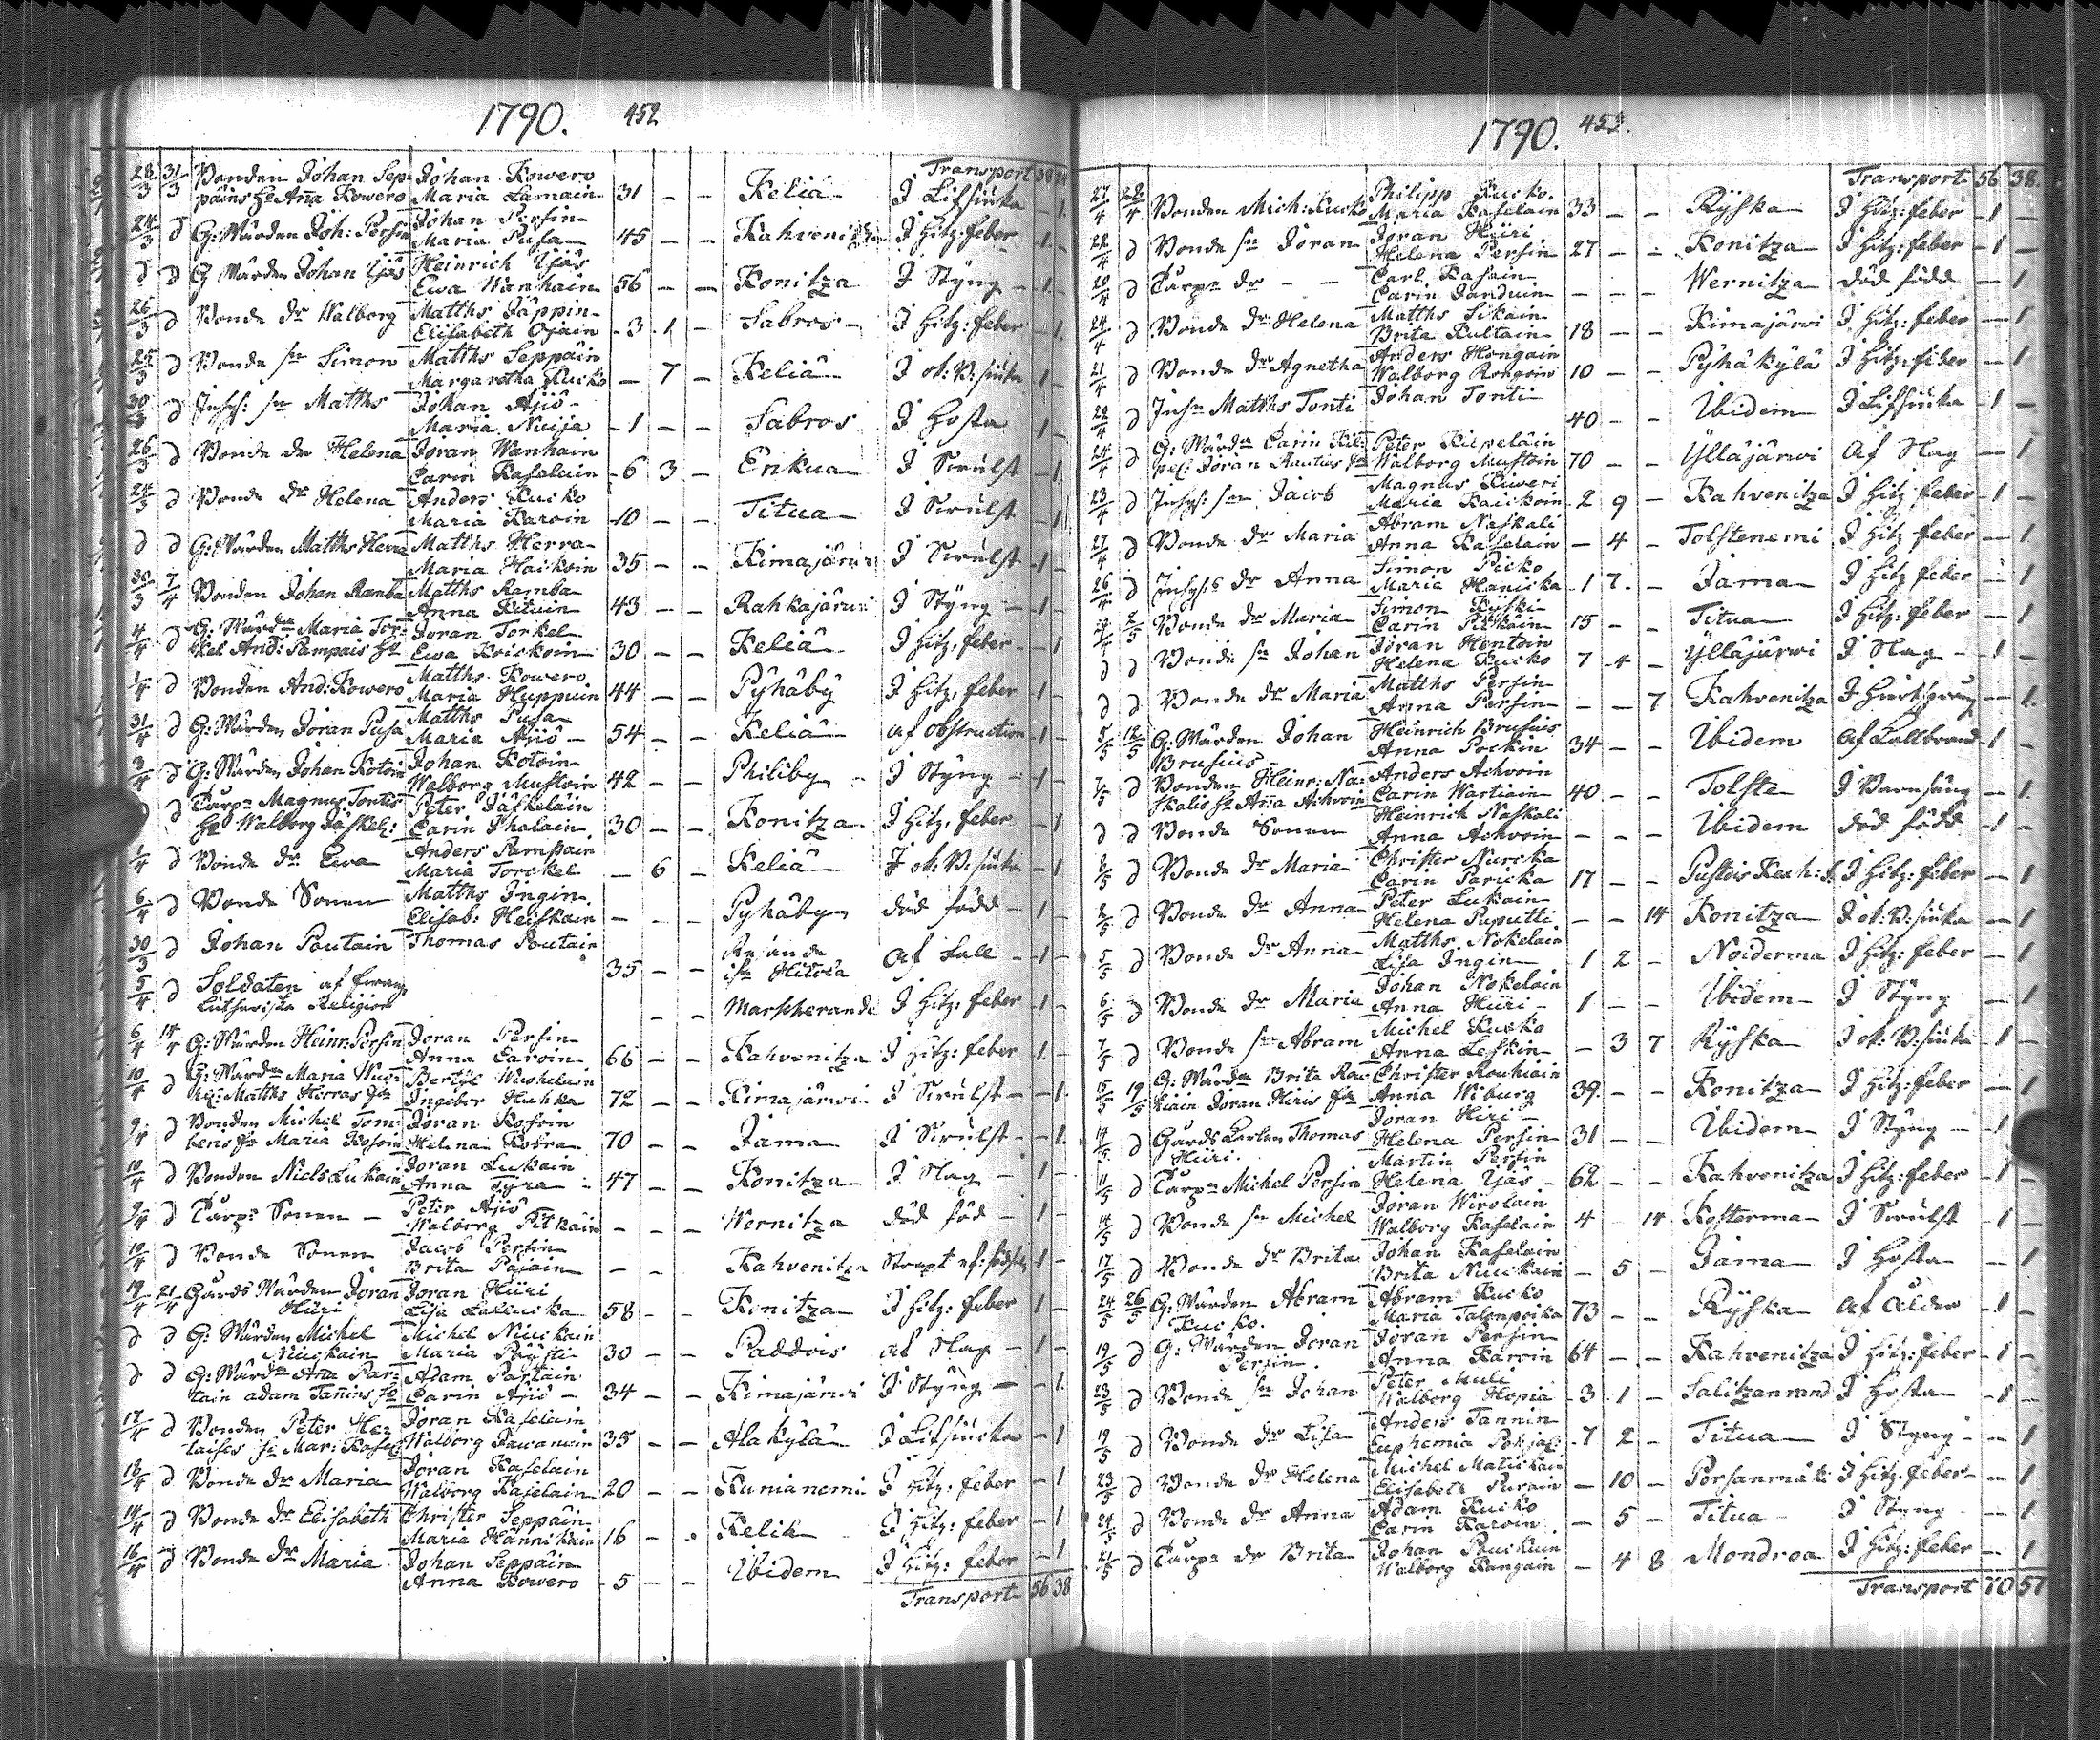 1790. 452
Transport 38 24
28/3 31/3 Bonden Johan Sep- Johan Kowero
päins H. Anna Kowero Maria Lamain 31 - - Keliä J Lifsiuka - 1.
24/3 d G: Wärden Joh: Persin Johan Persin
Maria Pusa 45 - - Kahvenitza J Hitz: feber 1 -
d d G Wärden Johan Ijäs Heinrich Ijäs
Ewa Wanhain 56 - - Konitza J Styng - 1 -
26/3 d Bonde dr Walborg Matths Jäppin
Elisabeth Ojain - 3 1 - Sabros - J Hitz: feber - 1.
25/3 d Bonde sn Simon Matths Seppäin
Margaretha Kucko - 7 - Keliä J ok: B: siuka 1 -
30/3 d Inhys: sn Matths Johan Ajiö
Maria Nuija - 1 - - Sabros J Hosta 1 -
26/3 d Bonde dr Helena Jöran Wanhain
Carin Kaselain - 6 3 - Enkua J Swulst - 1
24/3 d Bonde dr Helena Anders Kucko
Maria Karvin 10 - - Titua J Swulst - 1
d d G: Wärden Matths Herra Matths Herra
Maria Haikoin 35 - - Kimajärwi J Swulst 1 -
30/3 7/4 Bonden Johan Ramba Matths Ramba
Anna Kituin 43 - - Rahkajärwi J Styng - 1 -
4/4 d G: Wärdn Maria Tor- Jöran Torkel
kel And: Sampais H. Ewa Krickoin 30 - - Keliä J Hitz. feber - 1
1/4 d Bonden And: Kowero Matths Kowero
Maria Huppuin 44 - - Pyhäby J Hitz. feber 1 -
31/4 d G: Wärden Jöran Pusa Matths Pusa
Maria Ajiö - 54 - - Keliä af obstruction 1 -
3/4 d G: Wärden Johan Kotoin Johan Kotoin
Walborg Mustoin 42 - - Philiby - J Styng - 1 -
d Torpn Magnus Tontis Peter Jäskeläin
H. Walborg Jäskel: Carin Iholain 30 - - Konitza J Hitz. feber - 1
1/4 d Bonde dr Ewa Anders Sampain
Maria Torckel - 6 - Keliä J ok: B: siuka - 1
6/4 d Bonde Sonen Matths Ingin
Elisab: Heiskain - - - Pyhäby död född - 1 -
30/3 d Johan Poutain Thomas Poutain
35 - - Resande
ifr. Hitola af Kall - 1 -
5/4 d Soldaten af
Lutherska Religion - - Marscherande J Hitz: feber 1 -
6/4 14/4 G: Wärden Heinr: Persin Jöran Persin
Anna Carvin 66 - - Kahvenitza J Hitz: feber 1 -
10/4 d G: Wärdn Maria Wuo- Bertil Wuohelain
hel: Matths Herras Ja Ingebor Huhka 72 - - Kimajärwi J Swulst - - 1.
9/4 d Bonden Michel Tom- Jöran Kosoin
bens H. Maria Kosoin Helena Kobra 70 - - Jama J Swulst - 1.
10/4 d Bonden Niels Lukain Jöran Lukain
Anna Tyra - 47 - - Konitza J Slag - 1 -
9/4 d Torpn Sonen - Peter Ajiö
Walborg Pitkäin - - - Wernitza död föd - 1 -
10/4 d Bonde Sonen Jacob Persin
Brita Pajain - - Kahvenitza Strapt ef: födseln 1 -
19/4 21/4 Gårds Wärden Jöran Jöran Hiiri
Hiiri Lisa Laliucka 58 - - Konitza J Hitz: feber 1 -
d d G: Wärden Michel Michel Niuckain
Niuckain Maria Päysti 30 - - Paddois af Slag - 1 -
d d G: Wärdn Anna Par- Adam Partain
tain adam Tannins H. Carin Ajiö - 34 - - Kimajärwi J Styng - 1.
17/4 d Bonden Peter Hä- Jöran Kaselain
laises H. Mar: Kasel: Walborg Kawanein 35 - - Alakylä J Lifsiucka - 1
18/4 d Bonde dr Maria Jöran Kaselain
Walborg Kaselain 20 - - Kunianemi J Hitz: feber - 1
14/4 d Bonde dr Elisabeth Christer Seppäin
Maria Hännikäin 16 - - Keliä J Hitz: feber - 1
16/4 d Bonde dr Maria Johan Seppäin
Anna Kowero - 5 - - Ibidem J Hitz: feber - 1
Transport 56 38
1790. 453.
Transport 56 38.
27/4 28/4 Bonden Mich: Kucko Philipp Kucko.
Maria Kaselain 33 - - Ryska J Hitz: feber - 1 -
22/4 d Bonde sn Jöran Jöran Hiiri
Helena Persin 27 - - Konitza J Hitz: feber - 1 -
20/4 d Torpn dr - - Carl Kasain
Carin Janduin - - - Wernitza död född - 1
24/4 d Bonde dr Helena Matths Sikain
Brita Kultain 18 - - Kimajärwi J Hitz: feber - 1
21/4 d Bonde dr Agnetha Anders Hongain
Walborg Rongoin 10 - - Pyhäkylä J Hitz: feber - 1
22/4 d Inhn Matths Tonti Johan Tonti
40 - - Ibidem J Lifsiuka - 1 -
24/4 d G: Wärdn Carin Kil- Peter Kilpeläin
pel: Jöran Rautius Ja Walborg Mustoin 70 - - Ylläjärwi Af Slag - 1
23/4 d Inhys: sn Jacob Magnus Kuweri
Maria Kaickoin 2 9 - Kahvenitza J Hitz feber - 1 -
27/4 d Bonde dr Maria Abram Naskali
Anna Kaselain - 4 - Tolstenemi J Hitz feber - 1
26/4 d Inhys dr Anna Simon Picko
Maria Hanicka 1 7. - Jama J Hitz feber - 1
29/4 2/5 Bonde dr Maria Simon Kyski
Carin Pitkäin 15 - - Titua J Hitz: feber - 1
d d Bonde sn Johan Jöran Hentoin
Helena Kucko 7 4 - Ylläjärwi J Slag - - 1 -
d d Bonde dr Maria Matths Persin
Anna Persin - - 7 Kahvenitza J - 1.
5/5 12/5 G: Wärden Johan Heinrich Brusius
Brusius Anna Pockin 34 - - Ibidem af Kallbrand - 1 -
7/5 d Bonden Heinr: Na- Anders Achvoin
skalis H. Anna Achvoin Carin Wartiain 40 - - Tolste J Barnsäng - 1
d d Bonde Sonen Heinrich Naskali
Anna Achvoin - - - Ibidem död född - 1 -
2/5 d Bonde dr Maria Christer Nurcka
Carin Paricka 17 - - J Hitz: feber - 1
2/5 d Bonde dr Anna Peter Lukain
Helena Puputti - - 14 Konitza J ok: B: siuka - 1
5/5 d Bonde dr Anna Matths Nokelain
Lisa Ingin 1 2 - Noiderma J Hitz: feber - 1
6/5 d Bonde dr Maria Johan Nokelain
Anna Hiiri - 1 - - Ibidem J Styng - 1
7/5 d Bonde sn Abram Michel Kucko
Anna Leskin - 3 7 Ryska J ok: B: siuka - 1 -
15/5 19/5 G: Wärdn Brita Rou- Christer Rouhiain
hiain Jöran Hiris Ja Anna Wiburg 39. - - Konitza J Hitz: feber - 1
14/5 d Gårds Karlen Thomas Jöran Hiri
Hiiri. Helena Persin 31 - - Ibidem J Styng - 1 -
11/5 d Torpn Michel Persin Martin Persin
Helena Ijäs - 62 - - Kahvenitza J Hitz: feber - 1 -
14/5 d Bonde sn Michel Jöran Wirolain
Walborg Kaselain 4 - 14. Kosterma J Swulst - 1 -
17/5 d Bonde dr Brita Johan Kaselain
Brita Niuckain - 5 - Jama J Hosta - 1
24/5 26/5 G: Wärden Abram Abram Kucko
Kucko. Maria Talonpoika 73 - - Ryska af Ålder - 1 -
19/5 d G: Wärden Jöran Jöran Persin
Persin. Anna Karvin 64 - - Kahvenitza J Hitz: feber - 1 -
23/5 d Bonde sn Johan Peter Muli
Walborg Hopia - 3 1 - Salitzanrand J Hosta - 1 -
19/5 d Bonde dr Lisa Anders Tannin
Euphemia Pohjal: - 7 2 - Titua J Styng - - 1
23/5 d Bonde dr Helena Michel Matickain
Elisabeth Purain - 10 - J Hitz. feber - 1
24/5 d Bonde dr Anna Adam Kucko
Carin Karvin. - 5 - Titua J Styng - 1
21/5 d Torpn dr Brita Johan Pouckun
Walborg Rongain - 4 8 Mondroa J Hitz: feber - 1
Transport 70 57